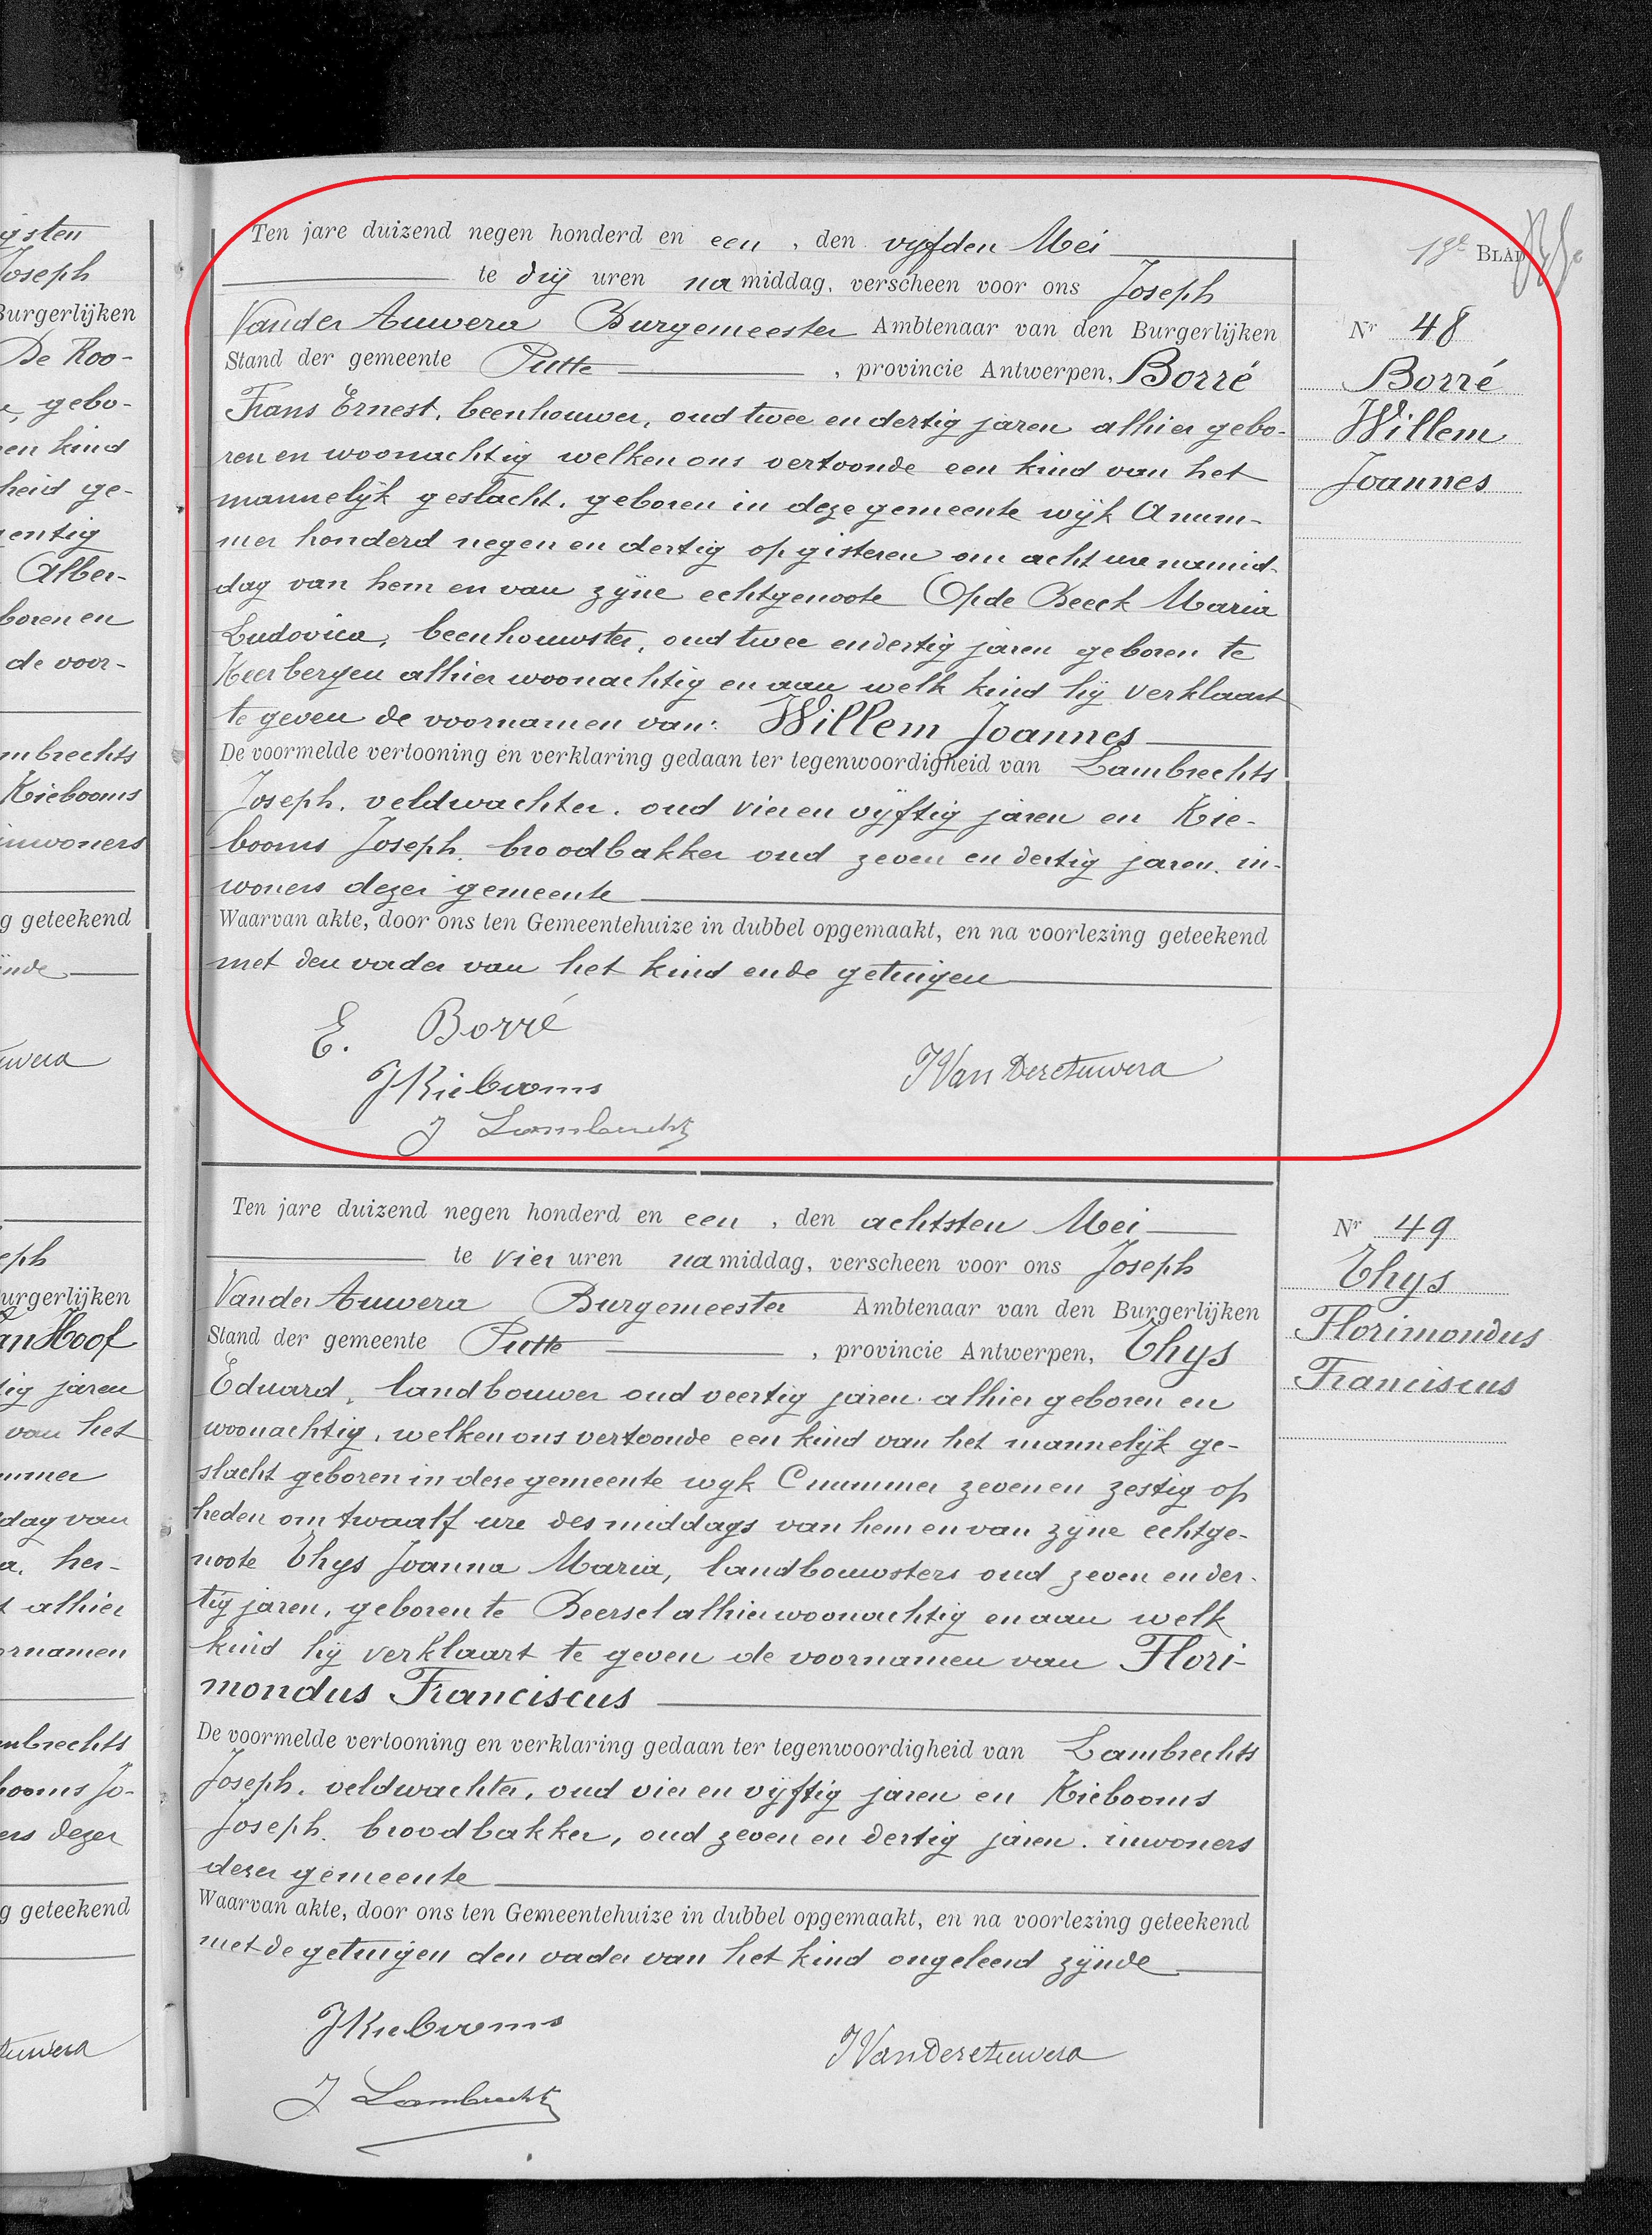 gsten
Joseph
Burgerlijken
De Roo-
gebo-
en kind
heid ge-
gentig
Alber-
boren en
de voor-
mbrechts
Kiebooms
inwoners
g geteekend
inde
uwera
eph
urgerlijken
an Hoof
tig jaren
van het
mmer
dag van
a, her-
t alhier
ornamen
mbrechts
booms Jo-
ers dezer
g geteekend
uwera
18e BLAD
Ten jare duizend negen honderd en een , den vyfden Mei
te drij uren namiddag, verscheen voor ons Joseph
Vander Auwera Burgemeester Ambtenaar van den Burgerlijken
Stand der gemeente Putte , provincie Antwerpen, Borré
Frans Ernest, beenhouwer, oud twee en dertig jaren alhier gebo-
ren en woonachtig welken ons vertoonde een kind van het
mannelijk geslacht, geboren in deze gemeente wijk A num-
mer honderd negen en dertig op gisteren om acht ure namid-
dag van hem en van zijne echtgenoote Op de Beeck Maria
Ludovica, beenhouwster, oud twee en dertig jaren geboren te
Keerbergen alhier woonachtig en aan welk kind hij verklaart
te geven de voornamen van: Willem Joannes
De voormelde vertooning en verklaring gedaan ter tegenwoordigheid van Lambrechts
Joseph, veldwachter, oud vier en vijftig jaren en Kie-
booms Joseph, broodbakker oud zeven en dertig jaren, in-
woners dezer gemeente
Waarvan akte, door ons ten Gemeentehuize in dubbel opgemaakt, en na voorlezing geteekend
met den vader van het kind en de getuigen
E. Borré
J Kiebooms
J Lambrechts
J Van Der Auwera
Nr 48
Borré
Willem
Joannes
Ten jare duizend negen honderd en een , den achtsten Mei
te vier uren namiddag, verscheen voor ons Joseph
Vander Auwera Burgemeester Ambtenaar van den Burgerlijken
Stand der gemeente Putte , provincie Antwerpen, Thys
Eduard, landbouwer oud veertig jaren alhier geboren en
woonachtig, welken ons vertoonde een kind van het mannelijk ge-
slacht geboren in deze gemeente wyk C nummer zeven en zestig op
heden om twaalf ure des middags van hem en van zijne echtge-
noote Thys Joanna Maria, landbouwsters oud zeven en der-
tig jaren, geboren te Beersel alhier woonachtig en aan welk
kind hij verklaart te geven de voornamen van Flori-
mondus Franciscus
De voormelde vertooning en verklaring gedaan ter tegenwoordigheid van Lambrechts
Joseph, veldwachter, oud vier en vijftig jaren en Kiebooms
Joseph, broodbakker, oud zeven en dertig jaren, inwoners
dezer gemeente
Waarvan akte, door ons ten Gemeentehuize in dubbel opgemaakt, en na voorlezing geteekend
met de getuigen den vader van het kind ongeleerd zijnde
J Kiebooms
J Lambrechts
J Van Der Auwera
Nr 49
Thys
Florimondus
Franciscus